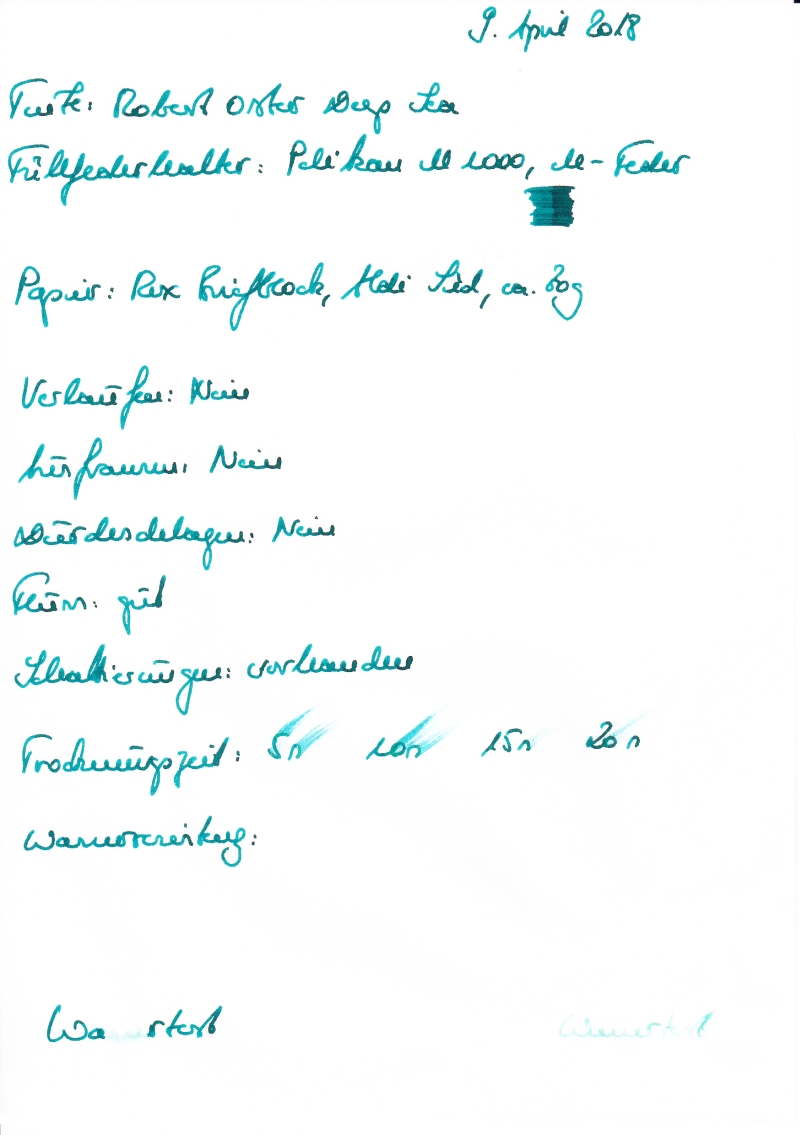 9. April 2018
Tinte: Robert Oster Deep Sea
Füllfederhalter: Pelikan M 1000, M-Feder
Papier: Rex Briefblock, Aldi Süd, ca. 80g
Verlaufen: Nein
Ausfransen: Nein
Durchschlagen: Nein
Fluss: gut
Schattierungen: vorhanden
Trocknungszeit: 5s 10s 15s 20s
Wasserwirkung:
Wassertest Wassertest